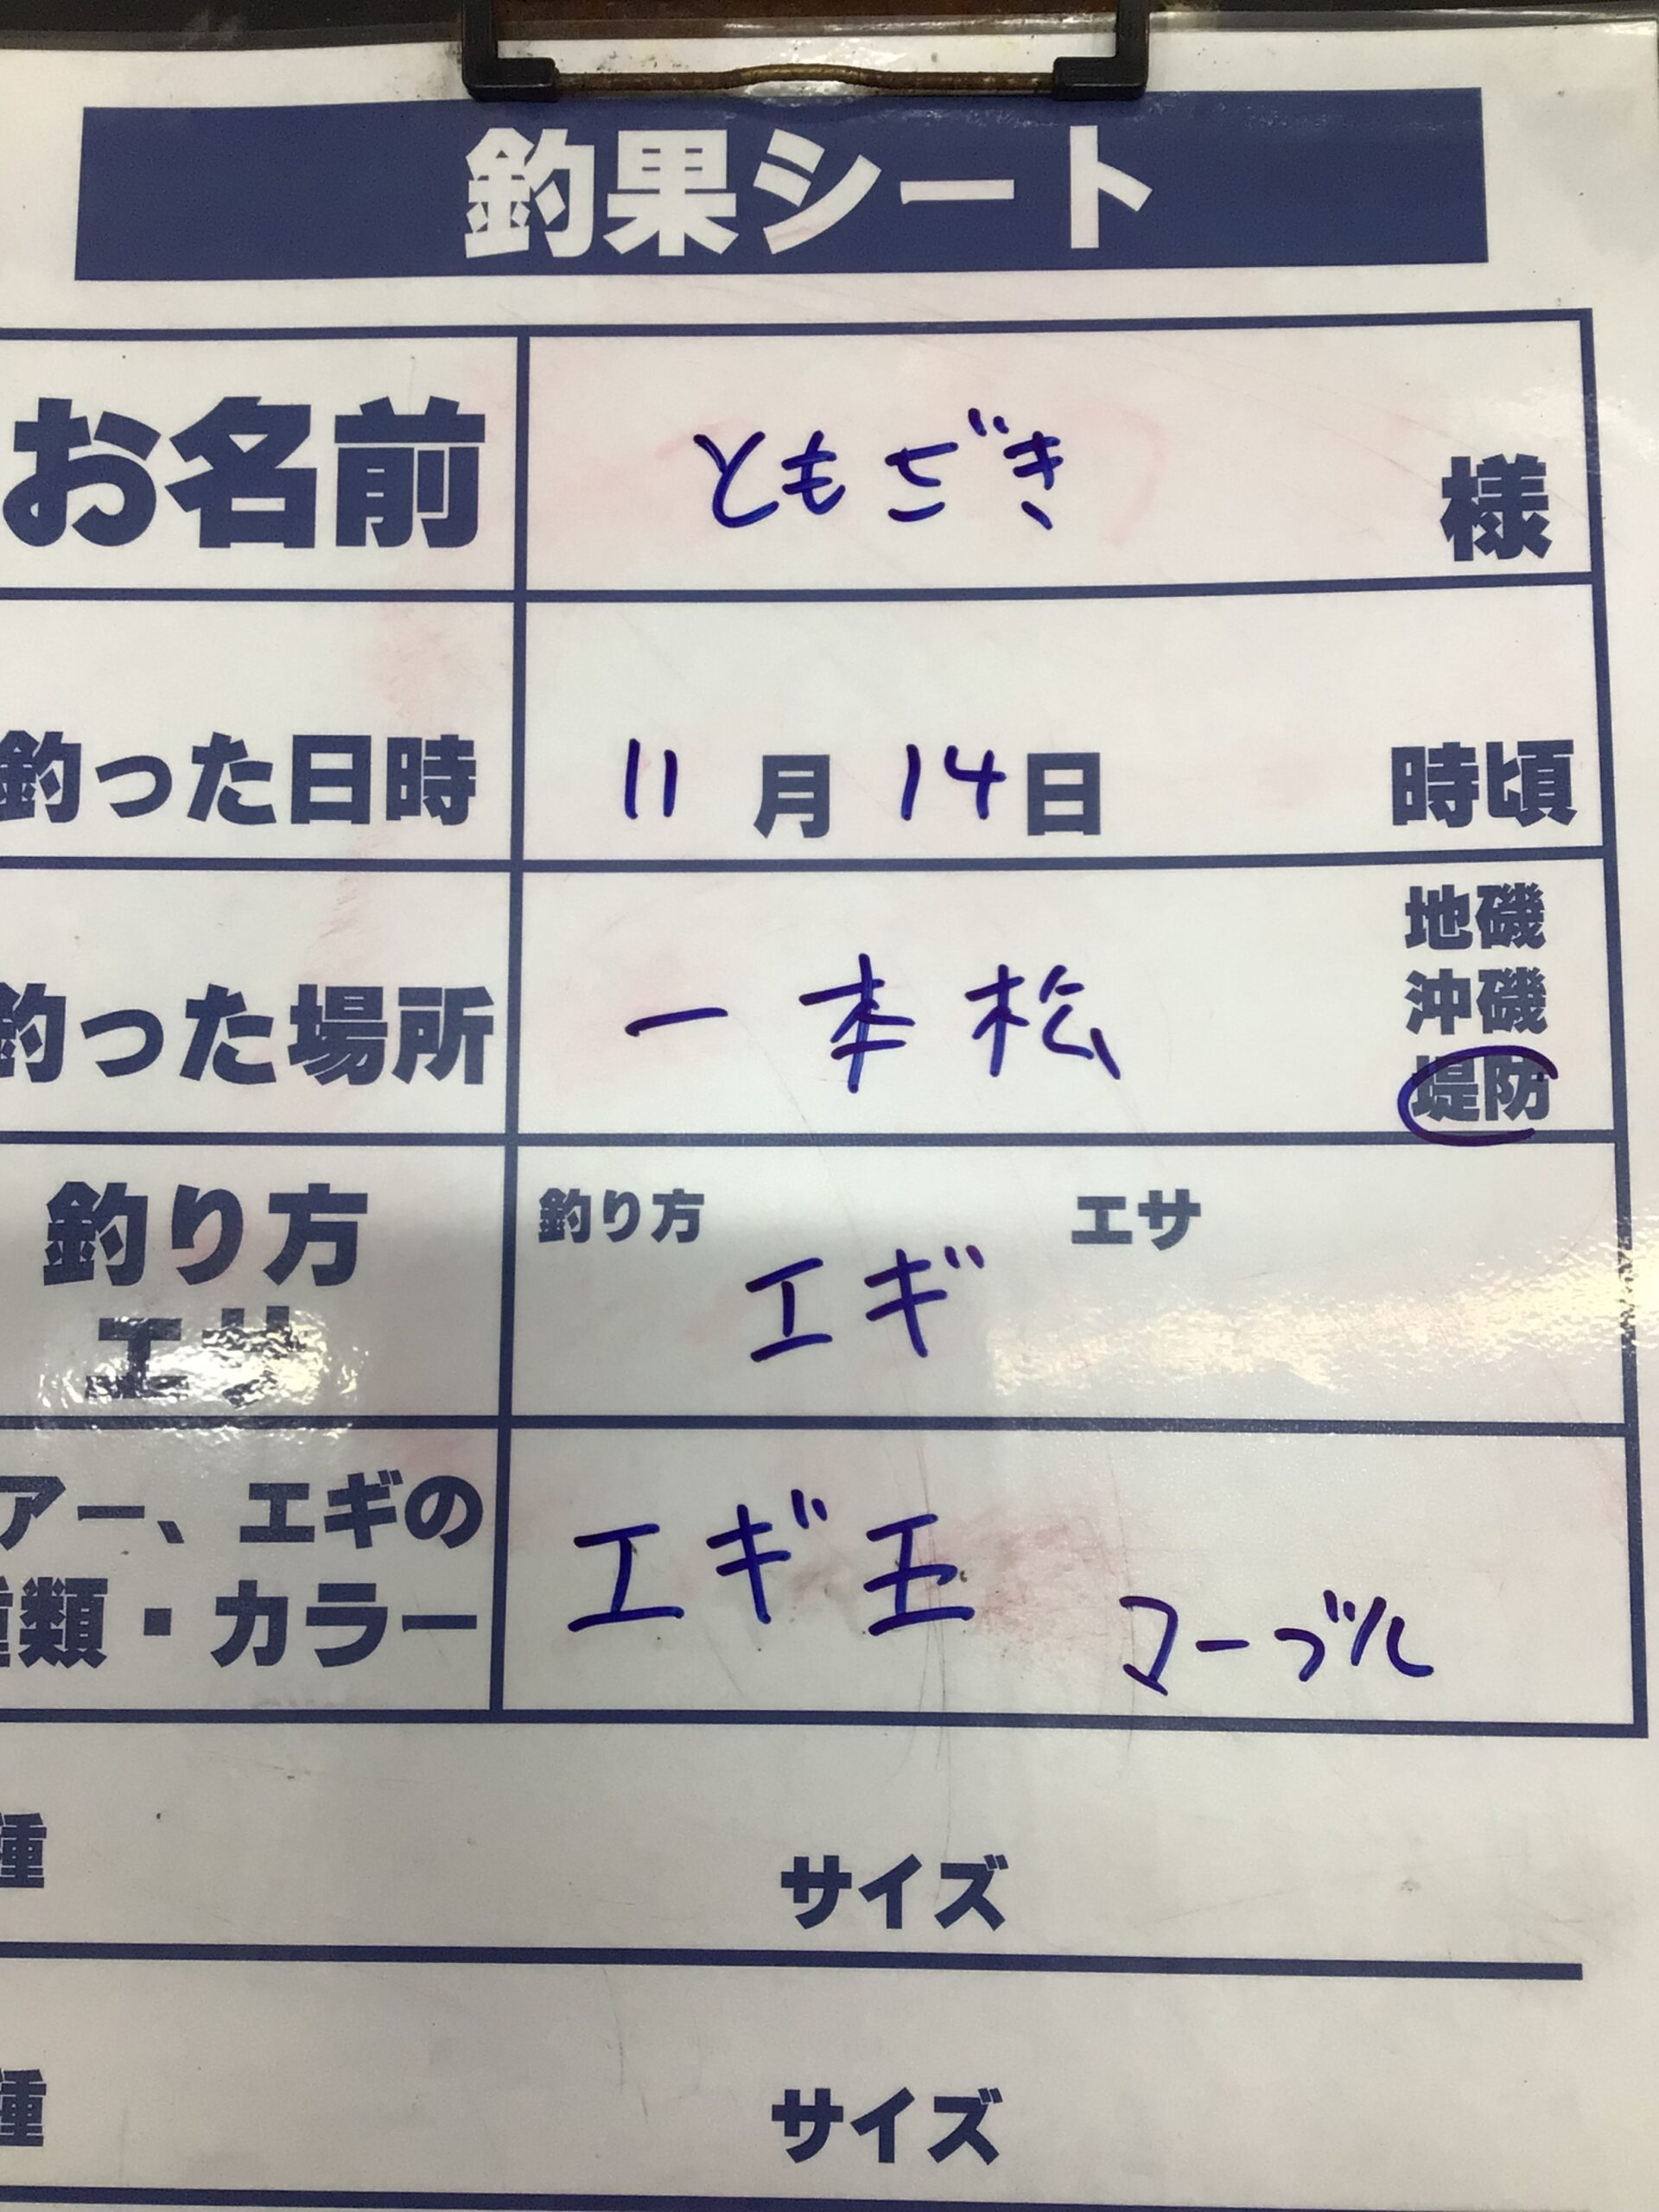 釣果シート
お名前 ともざき 様
釣った日時 11月14日 時頃
地磯
釣った場所 一本松 沖磯
堤防
釣り方 釣り方 エサ
エサ エギ
アー、エギの エギ王
種類・カラー マーブル
種 サイズ
種 サイズ